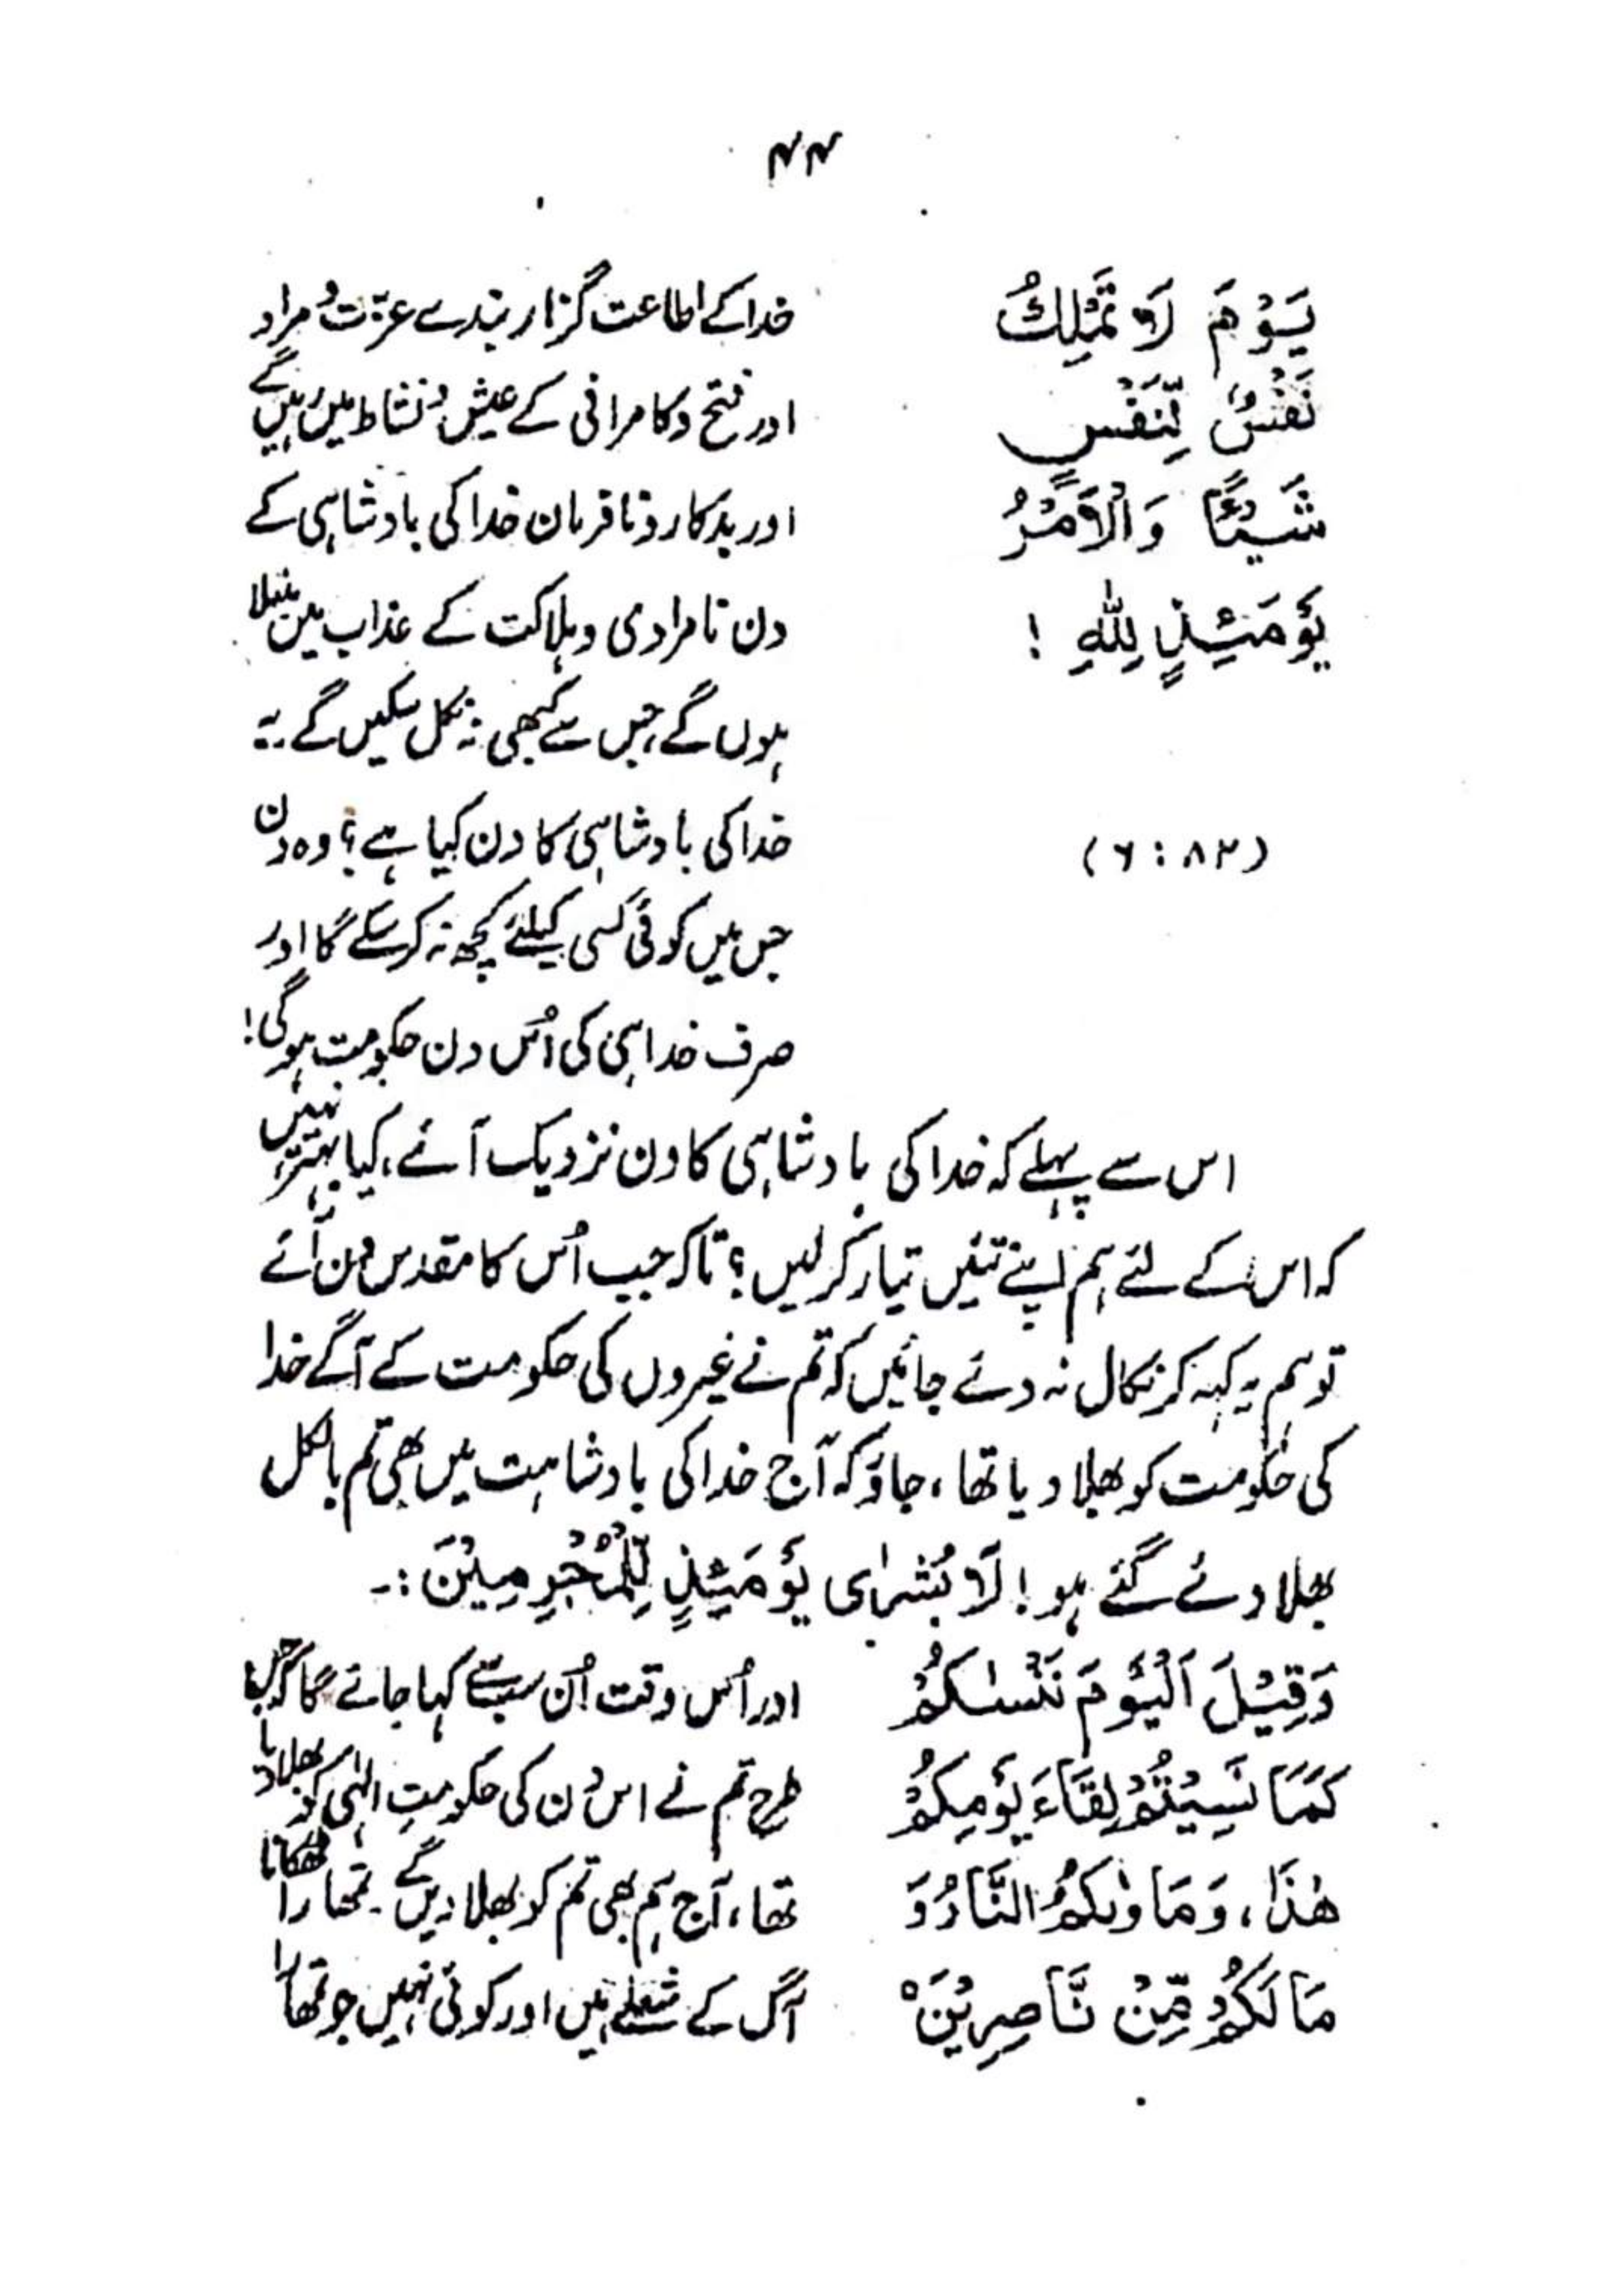 ۴۴
يَوْمَ لَا تَمْلِكُ
نَفْسٌ لِّنَفْسٍ
شَيْئًا وَالْاَمْرُ
يَوْمَئِذٍ لِلّٰهِ !
(۶ : ۸۲)
خدا کے اطاعت گزار بندے عزّت و مراد
اور فتح و کامرانی کے عیش و نشاط میں رہیں گے
اور بدکار و نافرمان خدا کی بادشاہی کے
دن نامرادی و ہلاکت کے عذاب میں مبتلا
ہوں گے، جس سے کبھی نہ نکل سکیں گے۔ یہ
خدا کی بادشاہی کا دن کیا ہے؟ وہ دن
جس میں کوئی کسی کیلئے کچھ نہ کر سکے گا اور
صرف خدا ہی کی اُس دن حکومت ہو گی!
اس سے پہلے کہ خدا کی بادشاہی کا دن نزدیک آئے، کیا بہتر نہیں
کہ اس کے لئے ہم اپنے تئیں تیار کر لیں؟ تاکہ جب اُس کا مقدس دن آئے
تو ہم یہ کہہ کر نکال نہ دئے جائیں کہ تم نے غیروں کی حکومت کے آگے خدا
کی حکومت کو بھلا دیا تھا، جاؤ کہ آج خدا کی بادشاہت میں بھی تم بالکل
بھلا دئے گئے ہو! لَا بُشْرٰى يَوْمَئِذٍ لِّلْمُجْرِمِيْنَ :۔
وَقِيْلَ اَلْيَوْمَ نَنْسٰكُمْ
كَمَا نَسِيْتُمْ لِقَاءَ يَوْمِكُمْ
هٰذَا، وَمَاوٰىكُمُ النَّارُ وَ
مَا لَكُمْ مِّنْ نَّاصِرِيْنَ ہ
اور اُس وقت اُن سب سے کہا جائے گا کہ جس
طرح تم نے اس دن کی حکومتِ الٰہی کو بھلا دیا
تھا، آج ہم بھی تم کو بھلا دیں گے۔ تمھارا ٹھکانا
آگ کے شعلے ہیں اور کوئی نہیں جو تمھارا